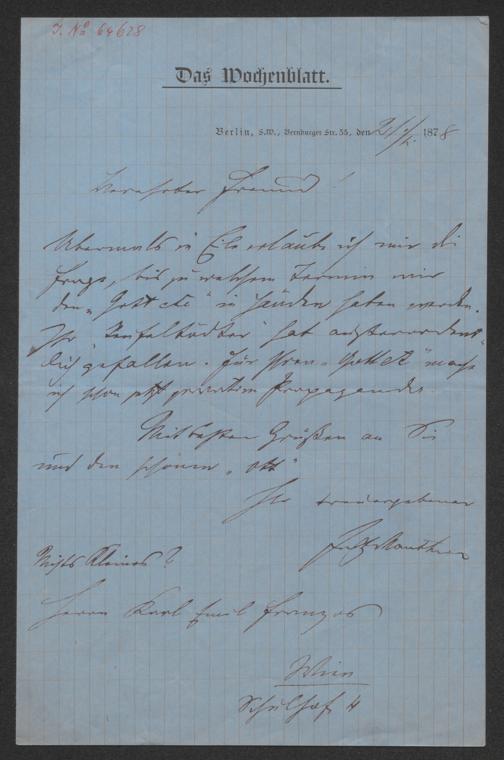 J. No 64628
Das Wochenblatt.
Berlin, S.W., Bernburger Str. 35, den 21/ 1878
Verehrter Freund!
Abermals in Eile erlaube ich mir die
Frage, bis zu welchem Termin wir
den „Gott etc" in Händen haben werden.
Ihr „Teufeltödter" hat außerordent-
lich gefallen. Für Ihren „Gott etc" mache
ich schon jetzt privatim Propaganda.
Mit besten Grüßen an Sie
und den schönen „Ott"
Ihr treuergebener
Fritz Mauthner
Nichts Kleines?
Herrn Karl Emil Franzos
Wien
Schulhof 4